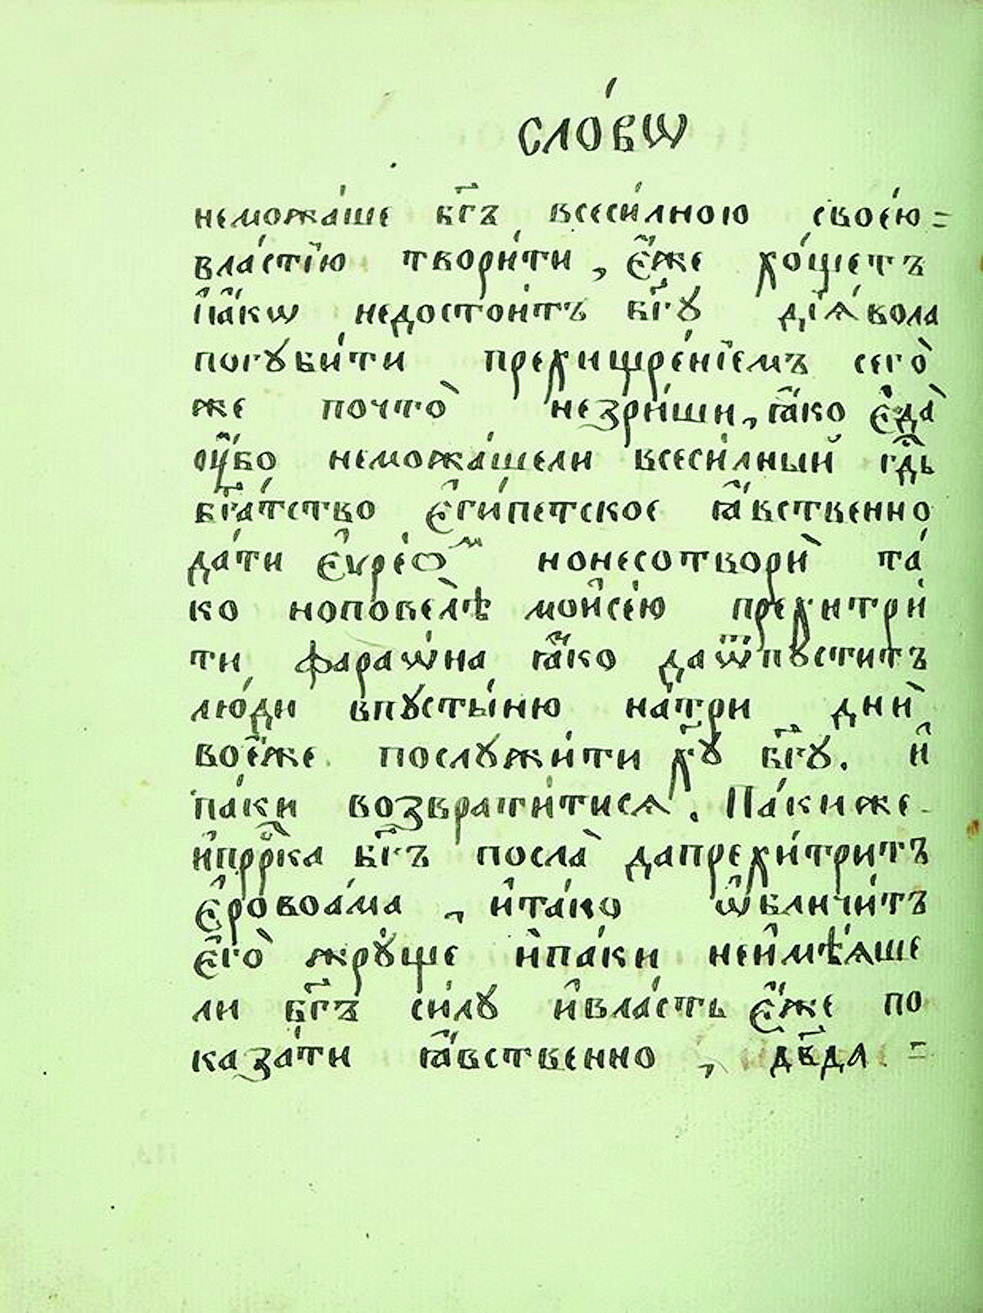 СЛО́ВѠ
неможа́ше бг҃ъ всеси́лною свое́ю =
вла́стїю твори́ти , є҆́же хо́щетъ
ꙗ҆́кѡ недосто́итъ бг҃ꙋ дїѧ́вола
погꙋби́ти прехищре́нїемъ сего̀
же почто̀ незри́ши, ꙗ҆́ко є҆да̀
ᲂу҆́бо неможа́шели всеси́лный гд҇ь
бг҃а́тство є҆гѵ́петское ꙗ҆́вственно
да́ти є҆вре́ѡм нонесотворѝ та́
ко ноповелѣ̀ мои҆се́ю прехитри́
ти фараѡ́на ꙗ҆́ко даѿпꙋститъ
лю́ди впꙋсты́ню на́три дни̑
вое҆́же послꙋжи́ти хꙋ҃ бг҃ꙋ. и҆
па́ки возврати́тисѧ. Па́киже
и҆прⷪ҇ро́ка бг҃ъ посла̀ дапрехи́тритъ
є҆ровоа́ма , и҆та́кѡ ѡ҆бличи́тъ
є҆го̀ жрꙋ́ще и҆па́ки неи҆мѣ́ѧше
ли бг҃ъ си́лꙋ и҆вла́сть є҆́же по
каза́ти ꙗ҆́вственно , дв҃да =